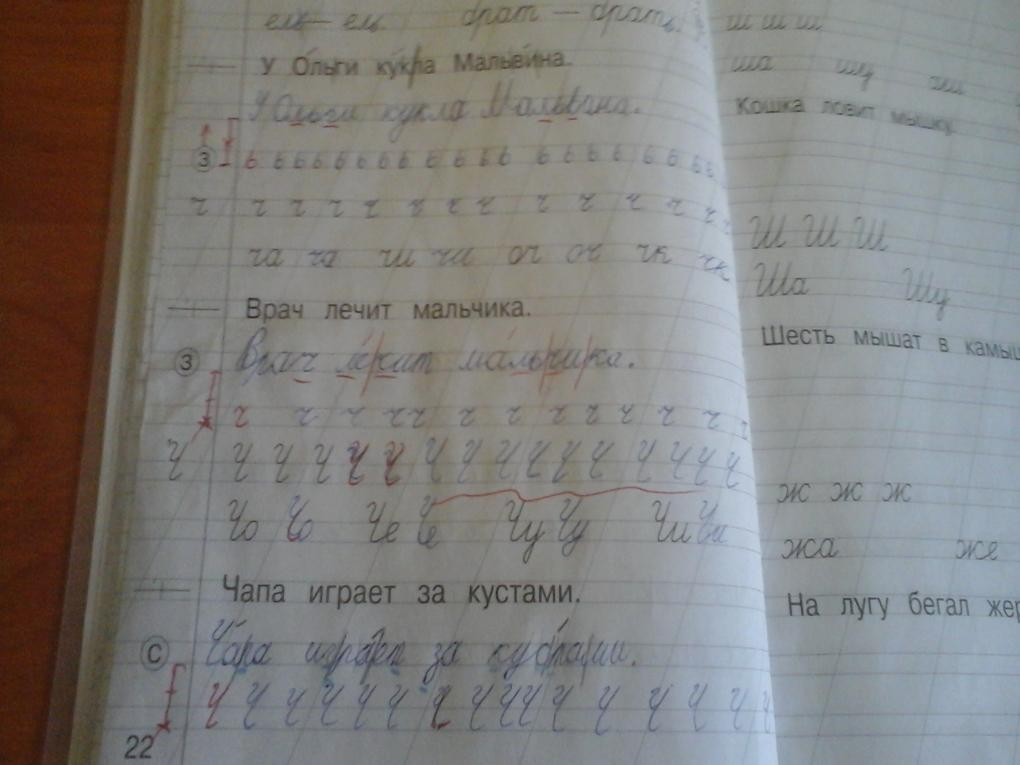 ель — ель брат — брать
У Ольги кукла Мальвина.
У Ольги кукла Мальвина.
З ь ь ь ь ь ь ь ь ь ь ь ь ь ь ь ь ь ь ь ь
ч ч ч ч ч ч ч ч ч ч ч ч ч ч
ча ча чи чи оч оч чк чк
Врач лечит мальчика.
З Врач лечит мальчика.
ч ч ч ч ч ч ч ч ч ч ч ч ч
Ч Ч Ч Ч Ч Ч Ч Ч Ч Ч Ч Ч Ч Ч Ч Ч
Чо Чо Че Че Чу Чу Чи Чи
Чапа играет за кустами.
С Чапа играет за кустами.
Ч Ч Ч Ч Ч Ч Ч Ч Ч Ч Ч Ч Ч Ч Ч Ч
22
ш ш ш
ша шу
Кошка ловит мышку.
Ш Ш Ш
Ша Шу
Шесть мышат в
ж ж ж
жа же
На лугу бегал